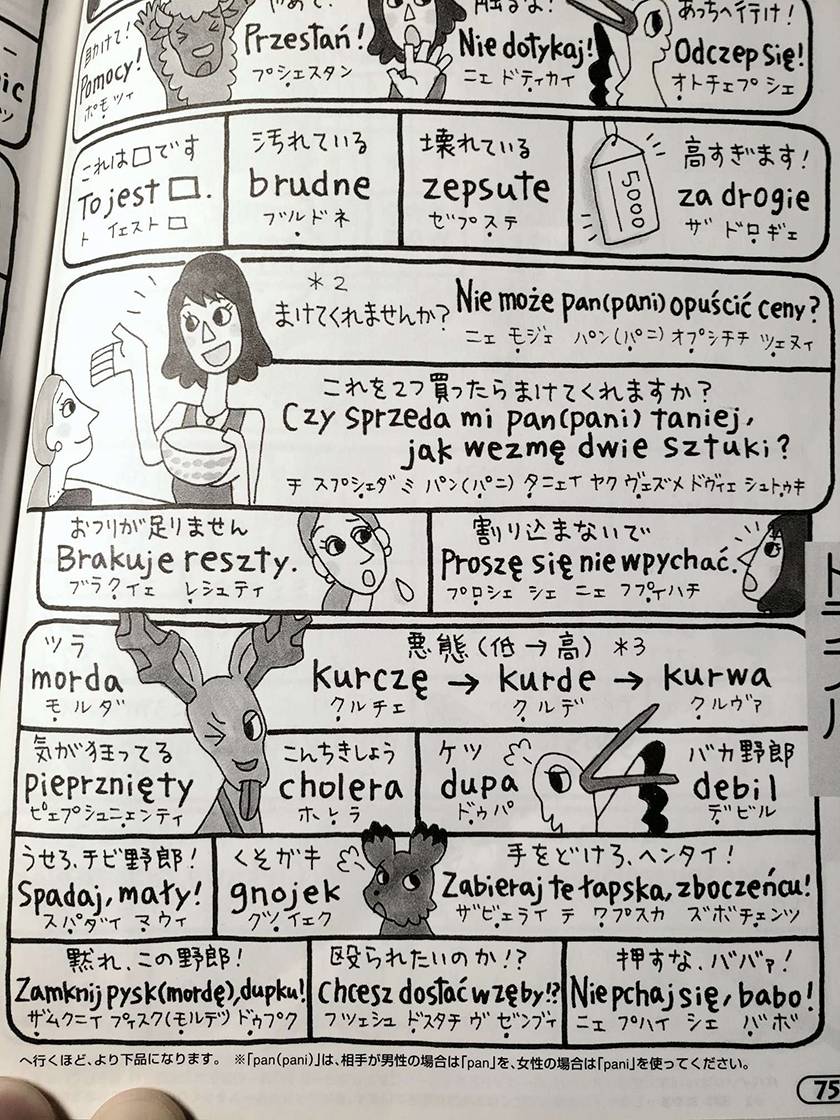 助けて!
Pomocy!
ポモツィ
やめて!
Przestań!
プシェスタン
触るな!
Nie dotykaj!
ニェ ドティカイ
あっちへ行け!
Odczep się!
オトチェプ シェ
これは□です
To jest □.
ト イェスト □
汚れている
brudne
ブルドネ
壊れている
zepsute
ゼプステ
5000
高すぎます!
za drogie
ザ ドロギェ
*2
まけてくれませんか?
Nie może pan(pani) opuścić ceny?
ニェ モジェ パン(パニ) オプシチチ ツェヌィ
これを2つ買ったらまけてくれますか?
Czy sprzeda mi pan(pani) taniej,
jak wezmę dwie sztuki?
チ スプシェダ ミ パン(パニ) タニェイ ヤク ヴェズメ ドヴィェ シュトゥキ
おつりが足りません
Brakuje reszty.
ブラクイェ レシュティ
割り込まないで
Proszę się nie wpychać.
プロシェ シェ ニェ フプィハチ
ツラ
morda
モルダ
悪態(低→高) *3
kurczę → kurde → kurwa
クルチェ クルデ クルヴァ
気が狂ってる
pieprznięty
ピェプシュニェンティ
こんちきしょう
cholera
ホレラ
ケツ
dupa
ドゥパ
バカ野郎
debil
デビル
うせろ、チビ野郎!
Spadaj, mały!
スパダイ マウィ
くそガキ
gnojek
グノイェク
手をどけろ、ヘンタイ!
Zabieraj te łapska, zboczeńcu!
ザビェライ テ ワプスカ ズボチェンツ
黙れ、この野郎!
Zamknij pysk(mordę), dupku!
ザムクニイ プィスク(モルデ) ドゥプク
殴られたいのか!?
Chcesz dostać w zęby!?
フツェシュ ドスタチ ヴ ゼンブィ
押すな、ババァ!
Nie pchaj się, babo!
ニェ プハイ シェ バボ
トラブル
へ行くほど、より下品になります。 ※「pan(pani)」は、相手が男性の場合は「pan」を、女性の場合は「pani」を使ってください。
75